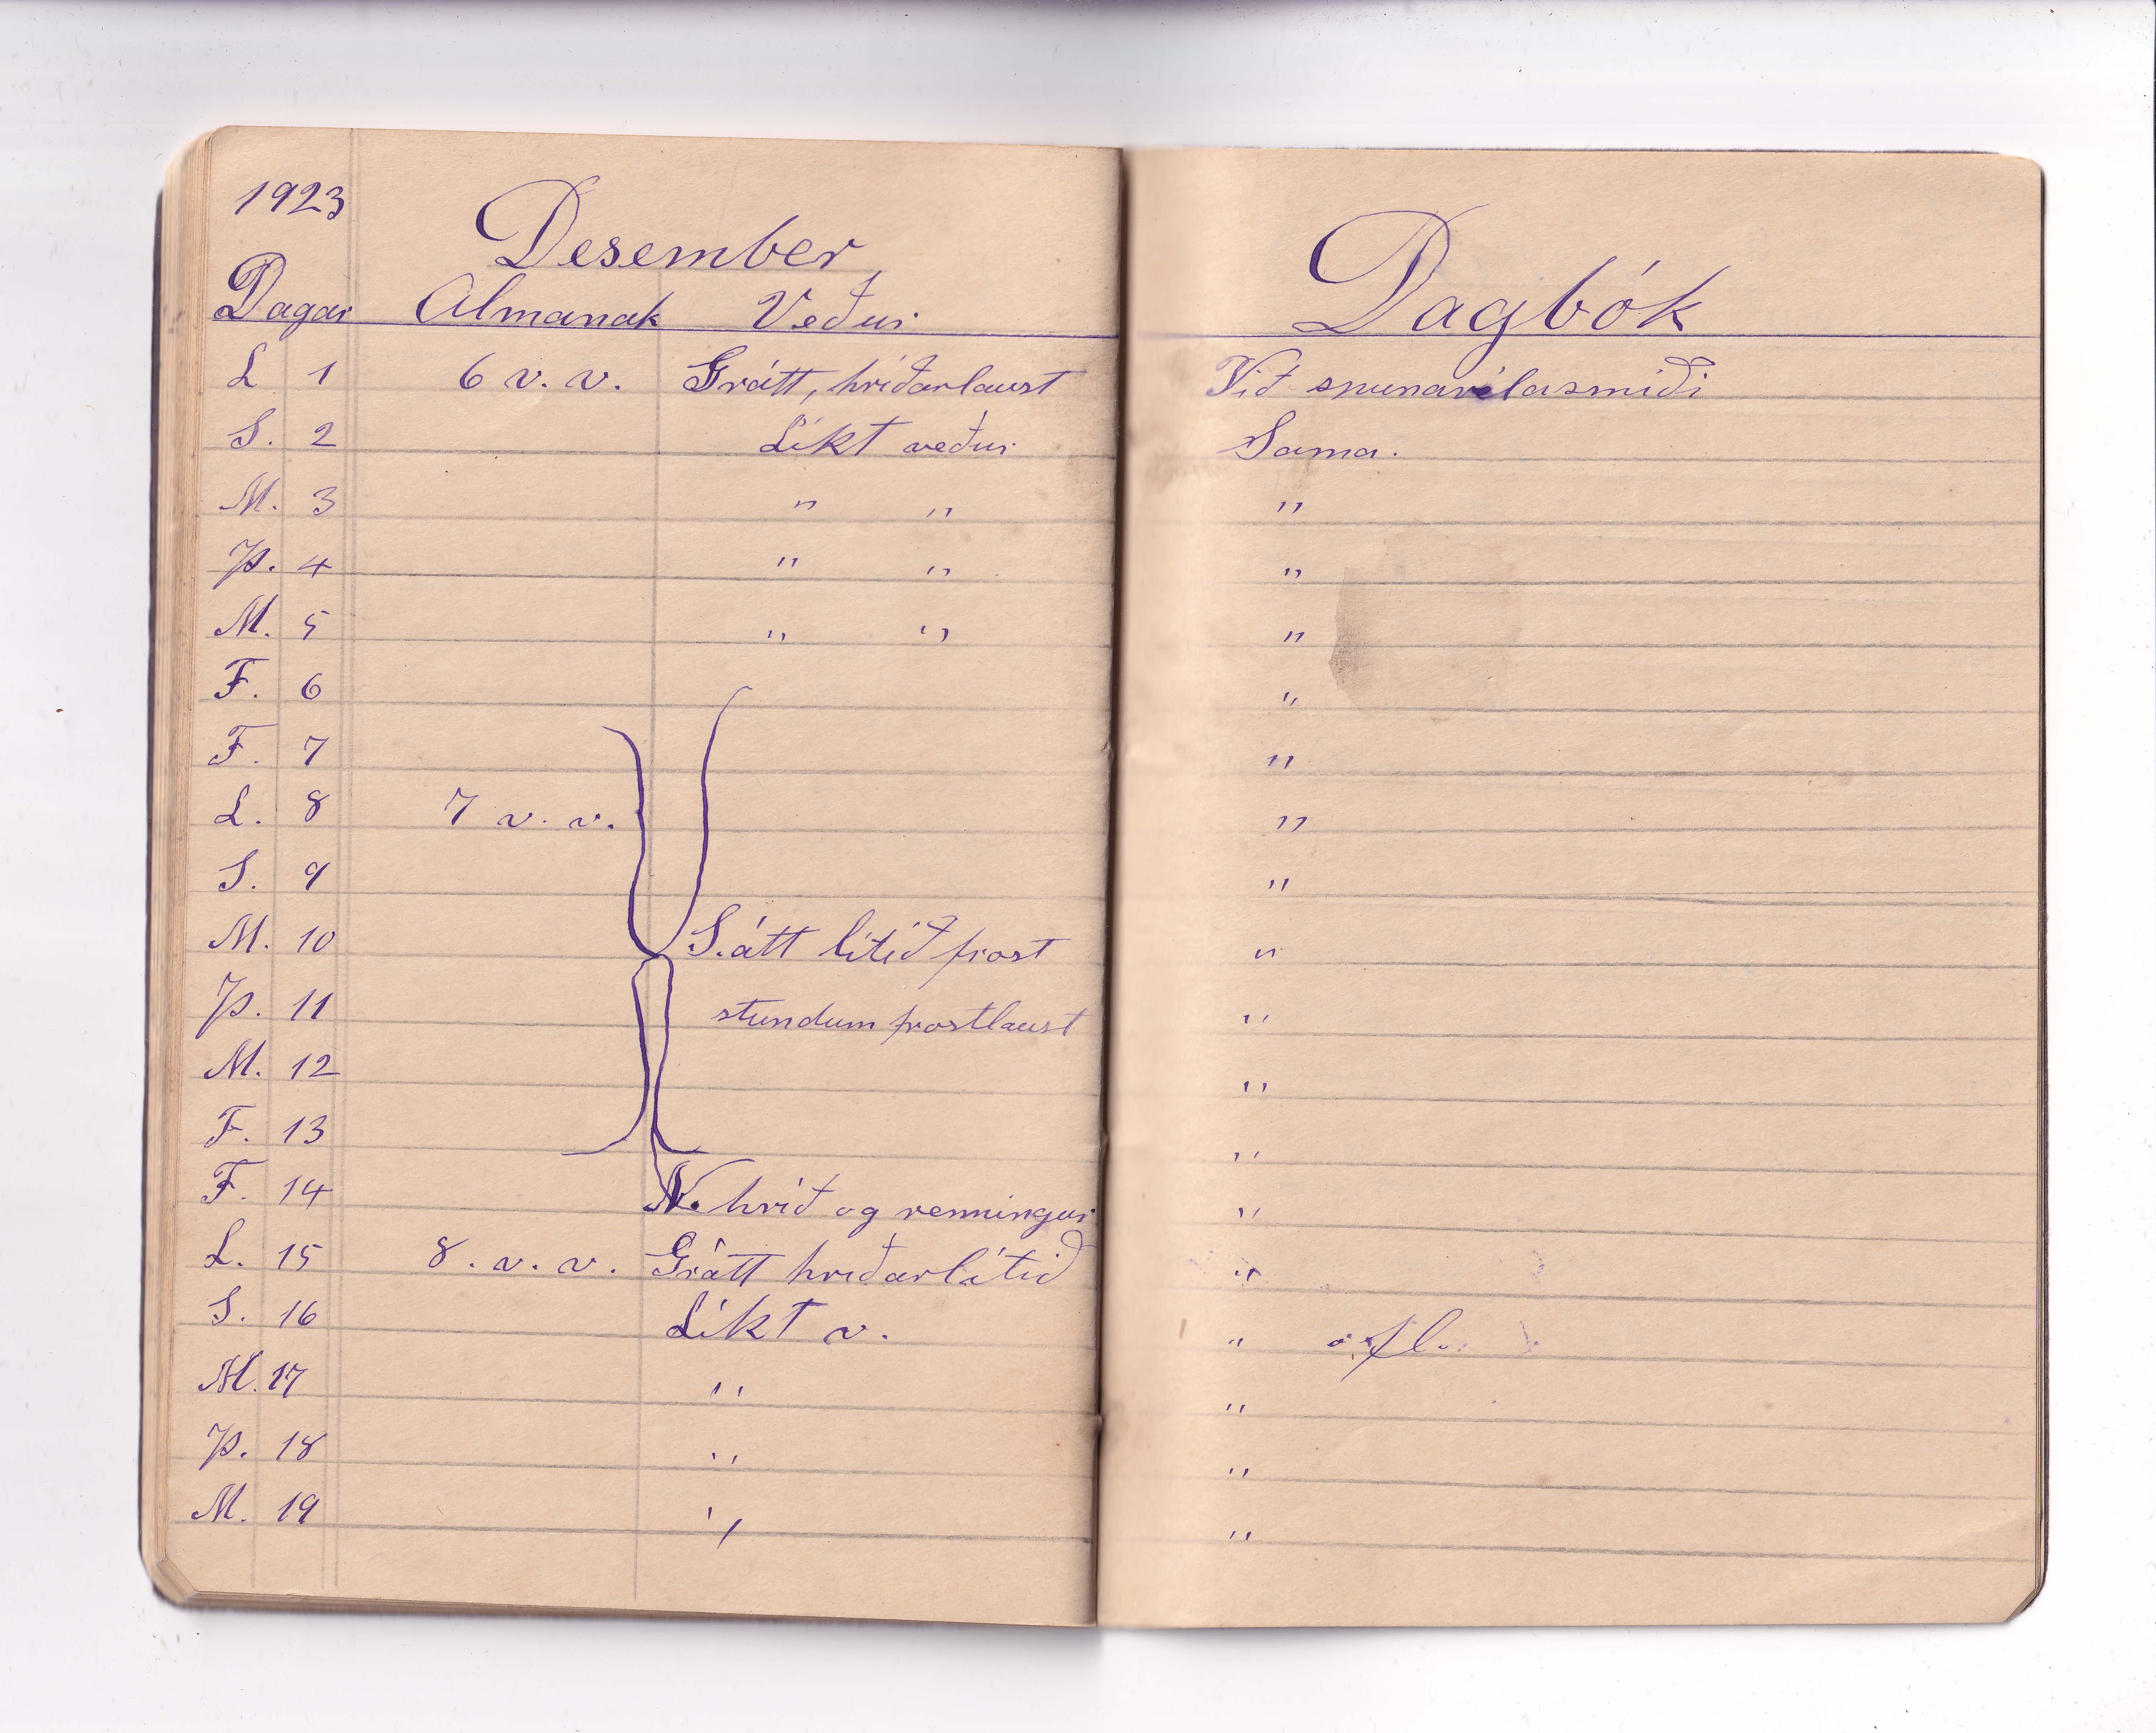 1923
Desember
Dagar Almanak Veður
L 1 6 v. v. Grátt, hríðarlaust
S. 2 Líkt veður
M. 3 " "
Þ. 4 " "
M. 5 " "
F. 6
F. 7
L. 8 7 v. v.
S. 9
M. 10 S.átt lítið frost
Þ. 11 stundum frostlaust
M. 12
F. 13
F. 14 N. hríð og renningur
L. 15 8. v. v. Grátt hríðarlítið
S. 16 Líkt v.
M. 17 "
Þ. 18 "
M. 19 "
Dagbók
Við spunavélasmíði
Sama.
"
"
"
"
"
"
"
"
"
"
"
"
"
" o.fl.
"
"
"